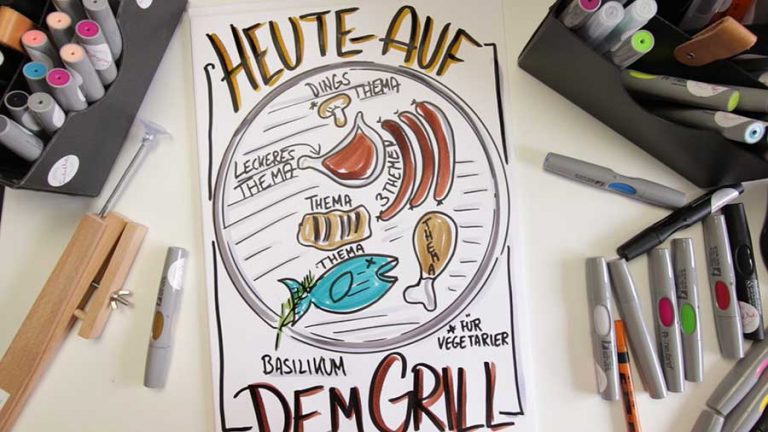 HEUTE-AUF
DINGS THEMA
*
LECKERES
THEMA
3 THEMEN
THEMA
THEMA
THEMA
* FÜR
VEGETARIER
BASILIKUM
DEM GRILL